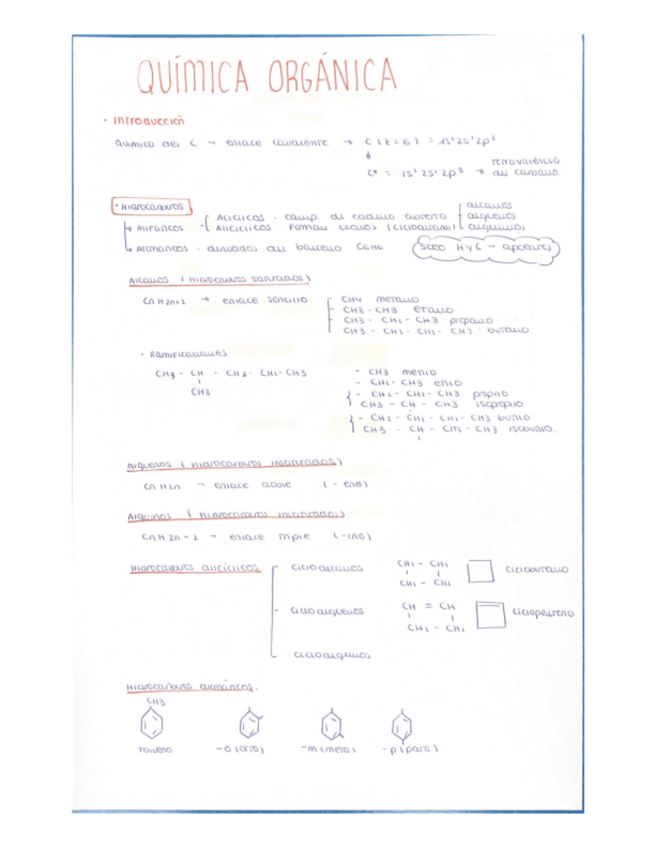 QUÍMICA ORGÁNICA
· Introducción
Química del C → enlace covalente → C (z=6) = 1s² 2s² 2p²
C* = 1s² 2s¹ 2p³ → tetravalencia del carbono.
· Hidrocarburos
→ Alifáticos
Acíclicos · comp. de cadena abierta
alcanos
alquenos
alquinos
Alicíclicos forman ciclos (cicloalcano)
→ Aromáticos · derivados del benceno C6H6
Solo H y C - apolares
Alcanos (hidrocarburos saturados)
CnH2n+2 → enlace sencillo
CH4 metano
CH3 - CH3 etano
CH3 - CH2 - CH3 propano
CH3 - CH2 - CH2 - CH3 · butano
· Ramificaciones
CH3 - CH - CH2 - CH2 - CH3
CH3
- CH3 metilo
- CH2 - CH3 etilo
- CH2 - CH2 - CH3 propilo
CH3 - CH - CH3 isopropilo
- CH2 - CH2 - CH2 - CH3 butilo
CH3 - CH - CH2 - CH3 isobutilo.
Alquenos (hidrocarburos insaturados)
CnH2n → enlace doble (-eno)
Alquinos (hidrocarburos insaturados)
CnH2n-2 → enlace triple (-ino)
Hidrocarburos alicíclicos
cicloalcanos
CH2 - CH2
CH2 - CH2
ciclobutano
cicloalquenos
CH = CH
CH2 - CH2
cicloalquinos
Hidrocarburos aromáticos.
CH3
Tolueno
-o (orto)
-m (meta)
-p (para)